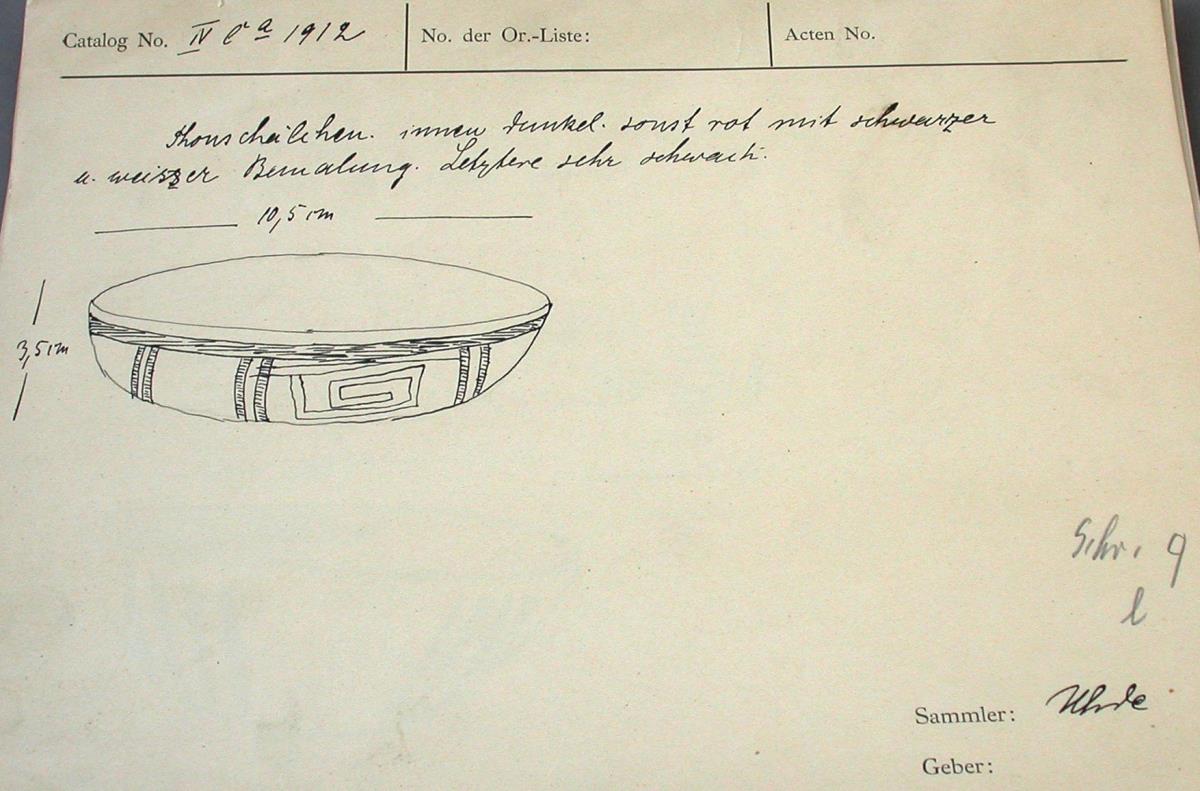 Catalog No. IV Ca 1912 No. der Or.-Liste: Acten No.
Thonschälchen. innen dunkel. sonst rot mit schwarzer
u. weiszer Bemalung. Letztere sehr schwach.
10,5 cm
3,5 cm
Schr. 9
l
Sammler: Uhde
Geber: